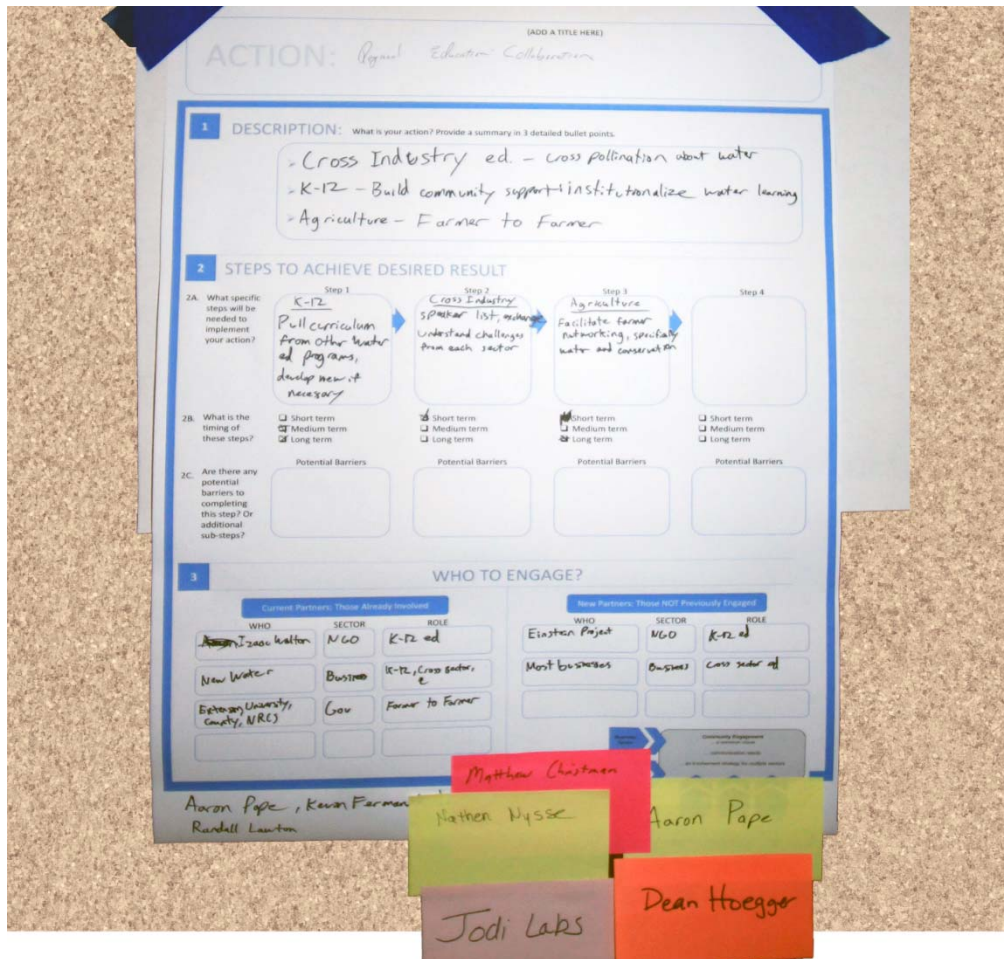 (ADD A TITLE HERE)
ACTION: Education Collaboration
1 DESCRIPTION: What is your action? Provide a summary in 3 detailed bullet points.
- Cross Industry ed. - cross pollination about water
- K-12 - Build community support + institutionalize water learning
- Agriculture - Farmer to Farmer
2 STEPS TO ACHIEVE DESIRED RESULT
2A. What specific steps will be needed to implement your action?
Step 1
K-12
Pull curriculum
from other water
ed programs,
develop new if
necessary
Step 2
Cross Industry
speaker list, exchange
Understand challenges
from each sector
Step 3
Agriculture
Facilitate farmer
networking, specifically
water and conservation
Step 4
2B. What is the timing of these steps?
Short term
Medium term
Long term
Short term
Medium term
Long term
Short term
Medium term
Long term
Short term
Medium term
Long term
2C. Are there any potential barriers to completing this step? Or additional sub-steps?
Potential Barriers
Potential Barriers
Potential Barriers
Potential Barriers
3 WHO TO ENGAGE?
Current Partners: Those Already Involved
WHO SECTOR ROLE
Izaac Walton NGO K-12 ed
New Water Business K-12, Cross sector,
Extension, University, County, NRCS Gov Farmer to Farmer
New Partners: Those NOT Previously Engaged
WHO SECTOR ROLE
Einstein Project NGO K-12 ed
Most businesses Business Cross sector ed
Community Engagement
Aaron Pope, Kevan
Randall Lawton
Matthew Christman
Nathen Nysse
Aaron Pape
Jodi Labs
Dean Hoegger